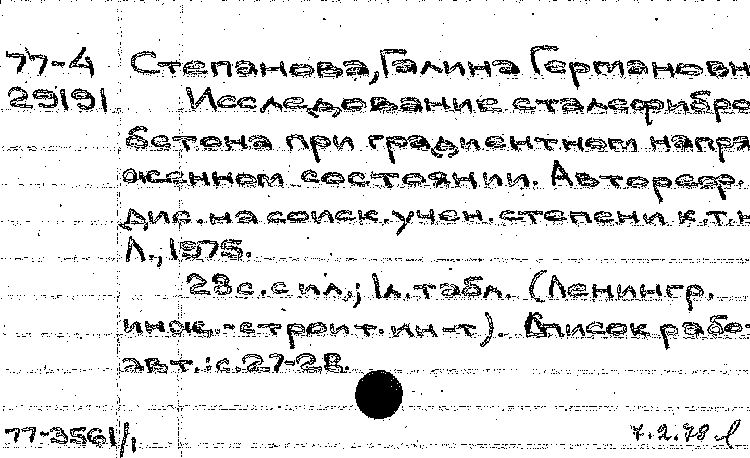 77-4 Степанова, Галина Германовн
29191 Исследование сталефибро
бетона при градиентном напря
женном состоянии. Автореф.
дис. на соиск. учен. степени к.т.н
Л., 1975.
28 с. с ил.; 1л. табл. (Ленингр.
инж.-строит. ин-т). Список работ
авт.: с. 27-28.
77-3561/1 7.2.78